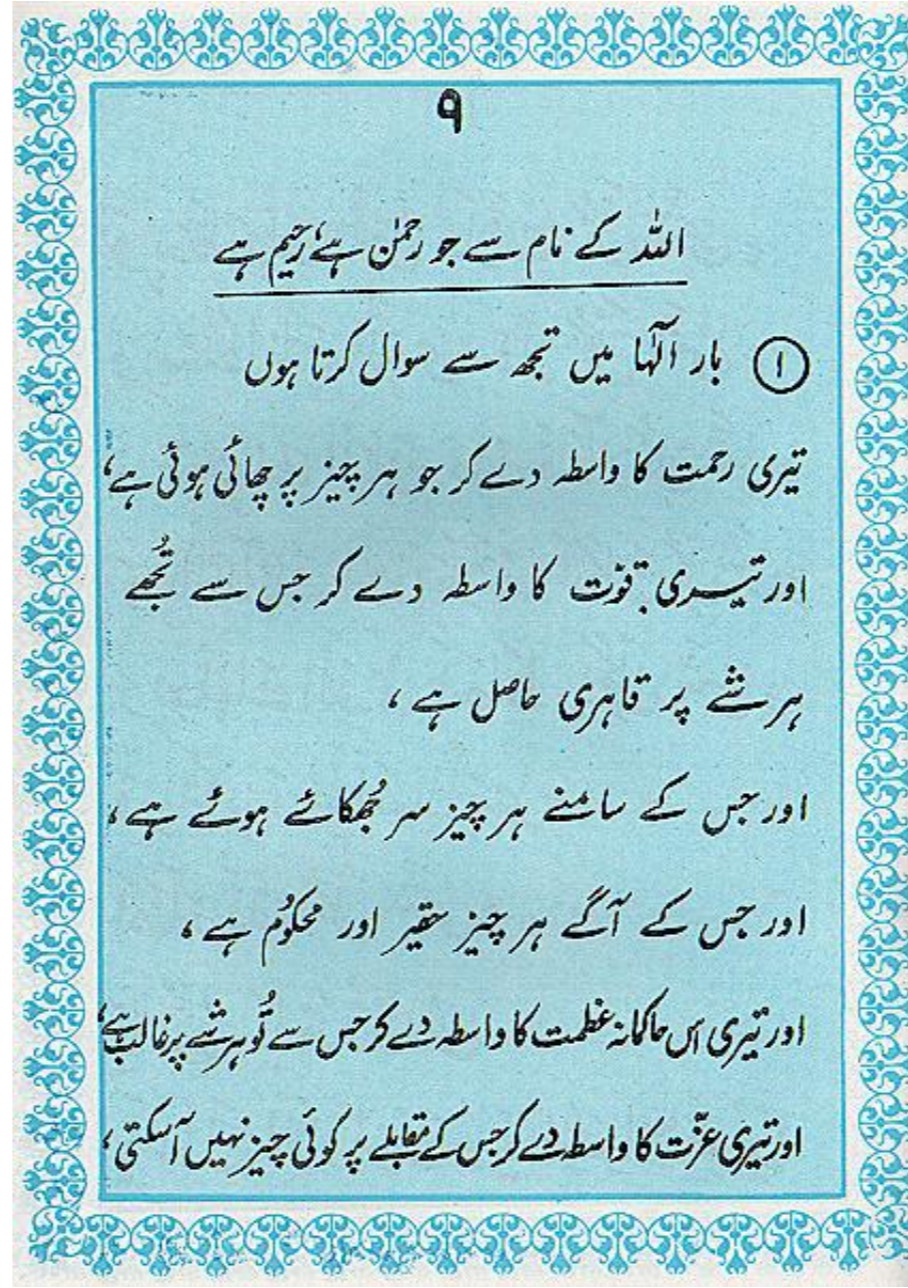 ۹
اللہ کے نام سے جو رحمٰن ہے، رحیم ہے
① بار الٰہا میں تجھ سے سوال کرتا ہوں
تیری رحمت کا واسطہ دے کر جو ہر چیز پر چھائی ہوئی ہے،
اور تیری قوّت کا واسطہ دے کر جس سے تُجھے
ہر شے پر قاہری حاصل ہے،
اور جس کے سامنے ہر چیز سر جُھکائے ہوئے ہے،
اور جس کے آگے ہر چیز حقیر اور محکوُم ہے،
اور تیری اس حاکمانہ عظمت کا واسطہ دے کر جس سے تُو ہر شے پر غالب ہے،
اور تیری عزّت کا واسطہ دے کر جس کے مقابلے پر کوئی چیز نہیں آسکتی،